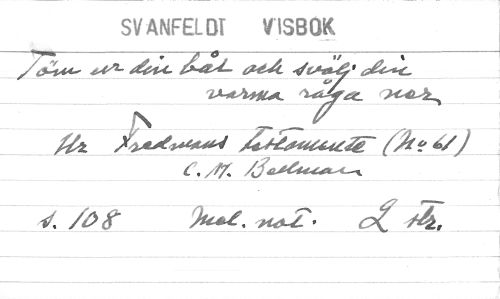 SVANFELDT VISBOK
Töm ur din båt och svälj din
varma råga ner
Ur Fredmans testamente (No 61)
C. M. Bellman
s. 108 Mel. not. 2 str.